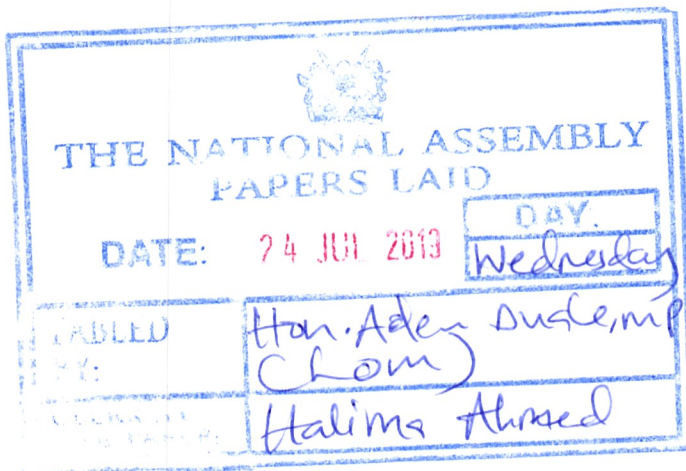 THE NATIONAL ASSEMBLY
PAPERS LAID
DATE: 24 JUL 2019
DAY.
Wednesday
TABLED BY:
Hon. Aden Duale, MP
(Lom)
Halima Ahmed